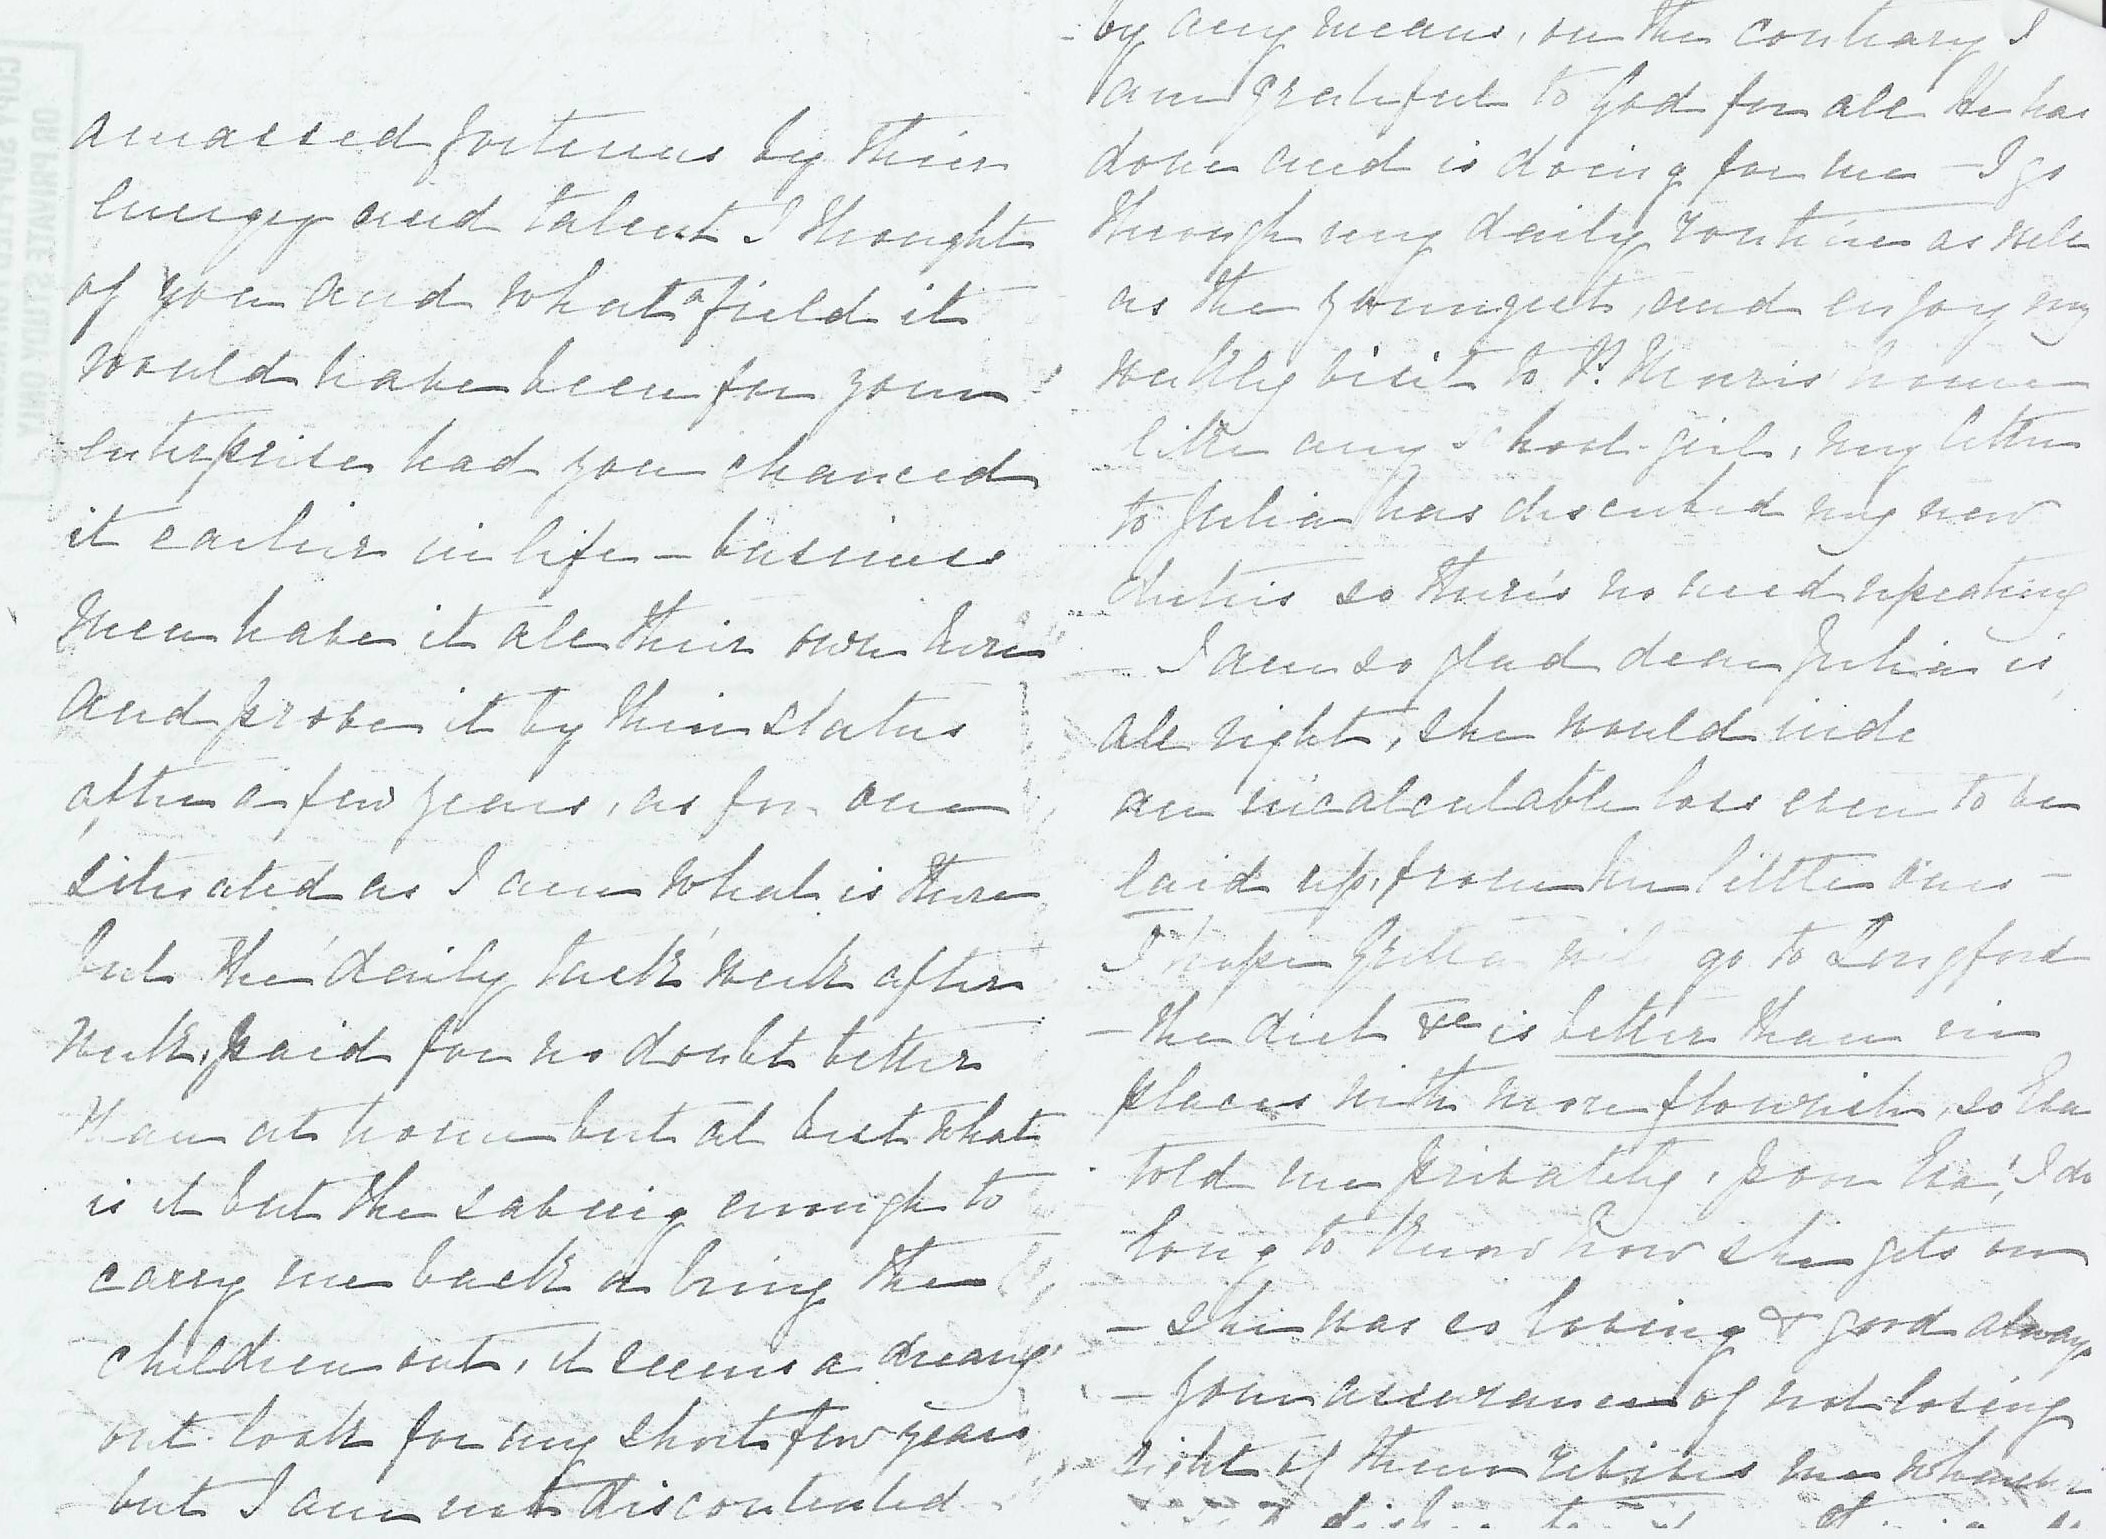 amassed fortunes by their
energy and talent I thought
of you and what a field it
would have been for your
enterprise had you chanced
it earlier in life – business
men have it all their own here
and prove it by their status
after a few years, as for one
situated as I am what is there
but the 'daily task' week after
week, paid for no doubt better
than at home but at best what
is it but the saving enough to
carry me back or bring the
children out, it seems a dreary
out-look for my short few years
but I am not discontented
by any means, on the contrary I
am grateful to God for all He has
done and is doing for me – I go
through my daily routine as well
as the youngest, and enjoy my
weekly visit to P. Morris' house
like any school-girl, my letter
to Julia has described my new
duties so there's no need repeating
– I am so glad dear Julia is
all right, she would inde
an incalculable loss even to be
laid up, from her little ones –
I hope will go to Longford
– the diet &c is better than in
places with more flourish, so Eva
told me privately, poor Eva! I do
long to know how she gets on
– she was so loving & good always
– your assurance of not losing
sight of them